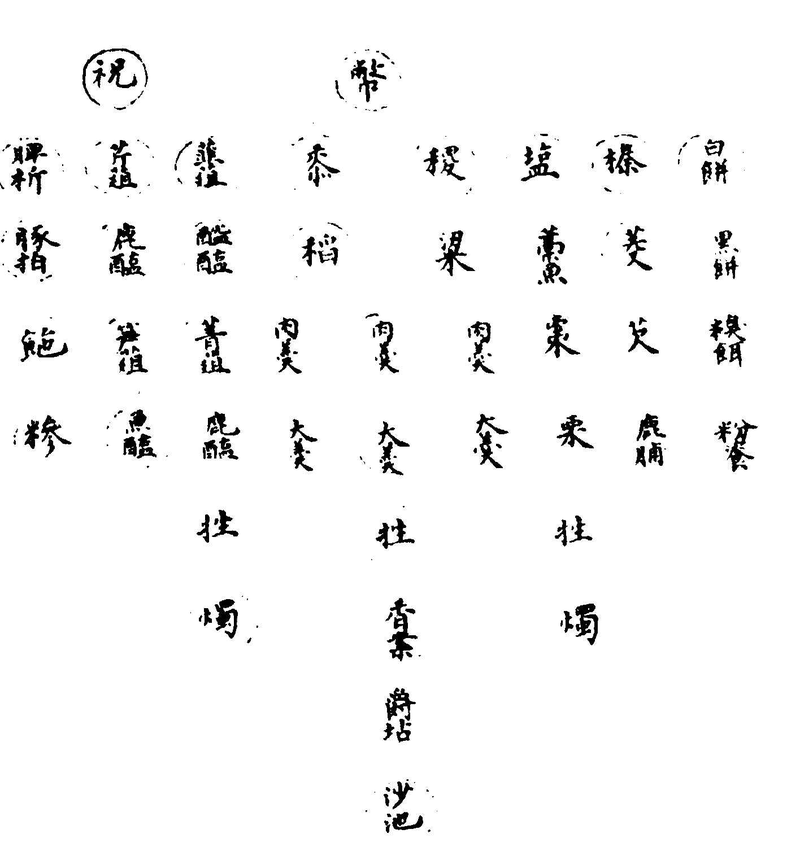 祝 幣
脾析 芹菹 韭菹 黍 稷 塩 榛 白餅
豚拍 鹿醢 醓醢 稻 粱 藁魚 菱 黑餅
鮑 笋菹 菁菹 肉羹 肉羹 肉羹 棗 芡 糗餌
糝 魚醢 鹿醢 大羹 大羹 大羹 栗 鹿脯 粉餈
牲 牲 牲
燭 香案 燭
爵坫
沙池